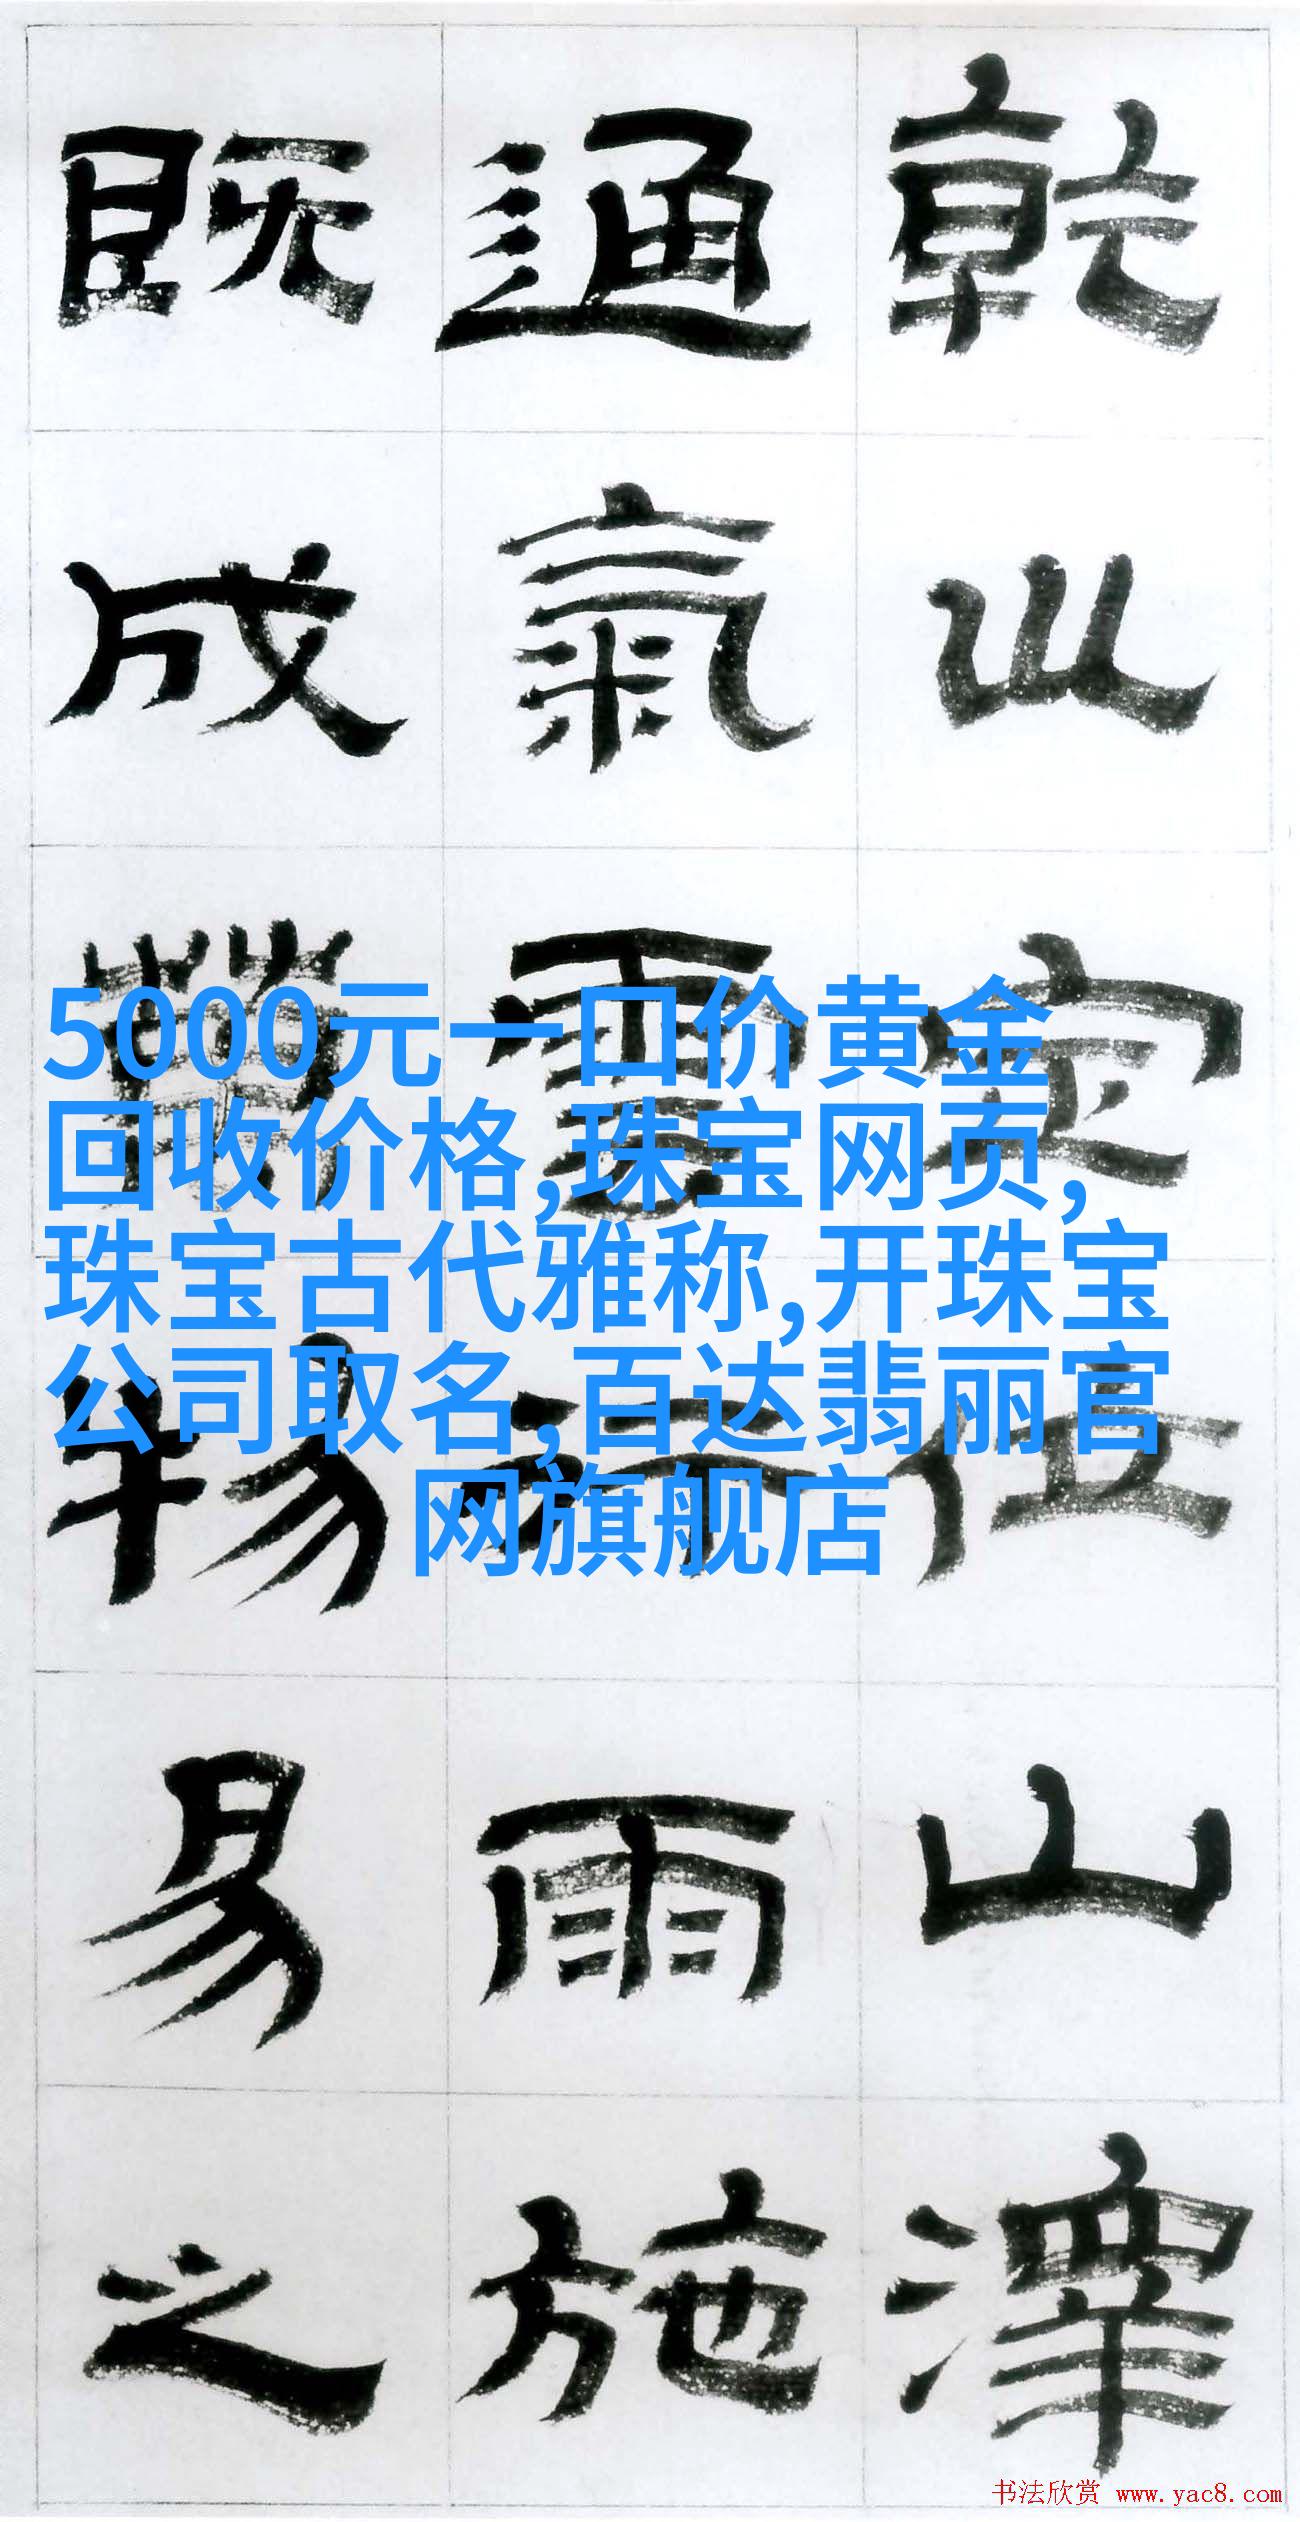 乾巛定位山澤
通氣雲行雨施
既成萬物易之
5000元一口价黄金
回收价格,珠宝网页,
珠宝古代雅称,开珠宝
公司取名,百达翡丽官
网旗舰店
书法欣赏 www.yac8.com